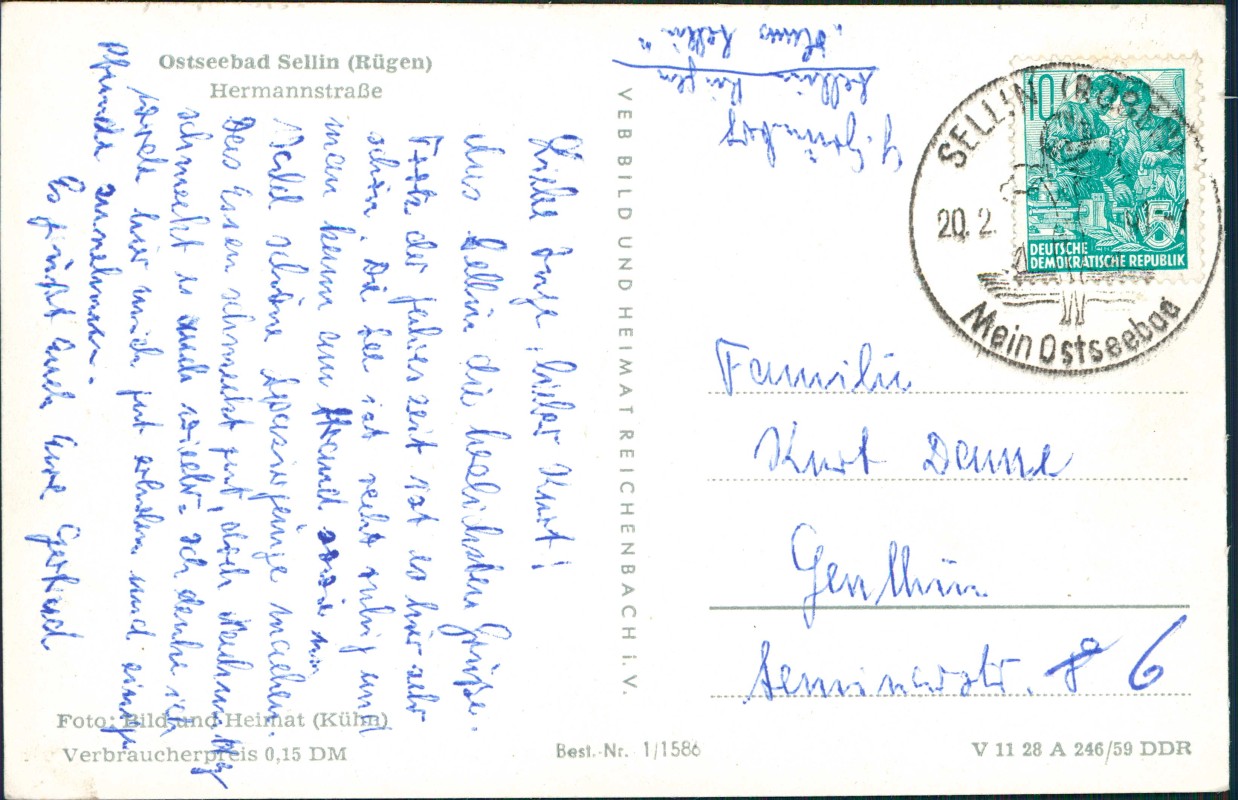 Ostseebad Sellin (Rügen)
Hermannstraße
Liebe Inge, lieber Kurt!
Aus Sellin die herzlichsten Grüße.
Trotz der Jahreszeit ist es hier sehr
schön. Die See ist recht ruhig und
man kann am Strand sowie im
Wald schöne Spaziergänge machen.
Das Essen schmeckt gut, nach
schmeckt es auch wieder. Ich denke ich
werde hier mich gut erholen und einige
Pfunde zunehmen.
Es grüßt Euch Eure Gertrud
Foto: Bild und Heimat (Kühn)
Verbraucherpreis 0,15 DM
VEB BILD UND HEIMAT REICHENBACH i. V.
Best.-Nr. 1/1586
G. Grünberg
Sellin Rügen
"Haus Sellin"
10
DEUTSCHE
DEMOKRATISCHE REPUBLIK
5
SELLIN
20. 2.
Mein Ostseebad
Familie
Kurt
Genthin
Seminarstr. 6
V 11 28 A 246/59 DDR